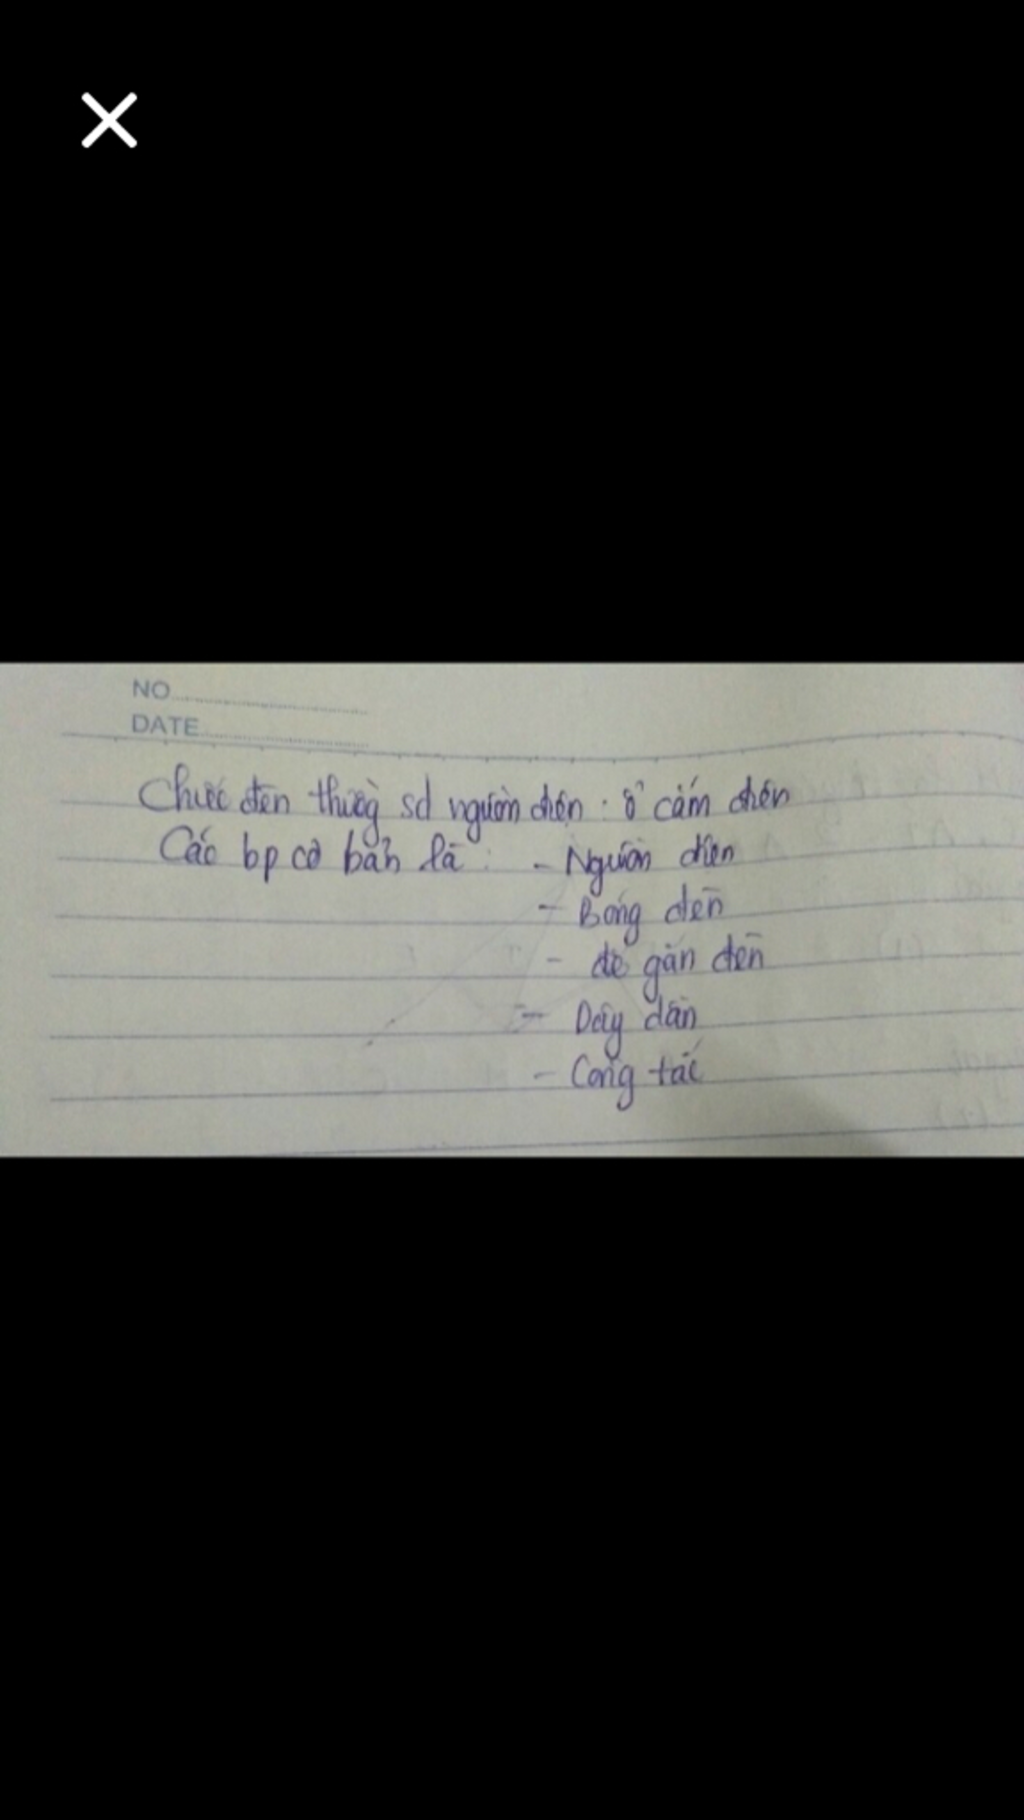 NO
DATE
Chiếc đèn thường sd nguồn điện : ổ cắm điện
Các bp cơ bản là : - Nguồn điện
- Bóng đèn
- đế gắn đèn
- Dây dẫn
- Công tắc